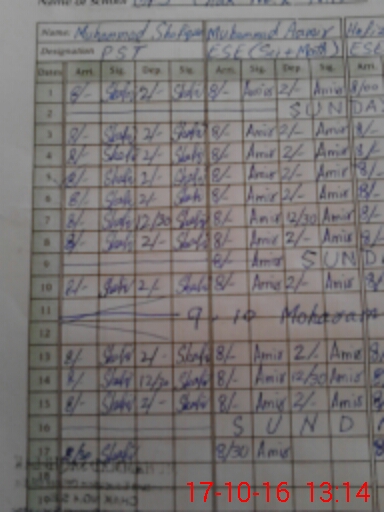 Name: Muhammad Shafique Muhammad Aamir Hafiz
Designation PST ESE (Sci + Math) ESE
Dates Arr. Sig. Dep. Sig. Arr. Sig. Dep. Sig. Arr.
1 8/- Shafi 2/- Shafi 8/- Amir 2/- Amir 8/00
2 SUNDA
3 8/- Shafi 2/- Shafi 8/- Amir 2/- Amir 8/-
4 8/- Shafi 2/- Shafi 8/- Amir 2/- Amir 8/-
5 8/- Shafi 2/- Shafi 8/- Amir 2/- Amir 8/-
6 8/- Shafi 2/- Shafi 8/- Amir 2/- Amir 8/-
7 8/- Shafi 12/30 Shafi 8/- Amir 12/30 Amir 8/-
8 8/- Shafi 2/- Shafi 8/- Amir 2/- Amir 8/-
9 8/- Amir SUND
10 8/- Shafi 2/- Shafi 8/- Amir 2/- Amir 8/-
11 9 - 10 Moharam
12
13 8/- Shafi 2/- Shafi 8/- Amir 2/- Amir 8/-
14 8/- Shafi 12/30 Shafi 8/- Amir 12/30 Amir 8/-
15 8/- Shafi 2/- Shafi 8/- Amir 2/- Amir 8/-
16 SUND
17 8/30 Shafi 8/30 Amir
18
17-10-16 13:14